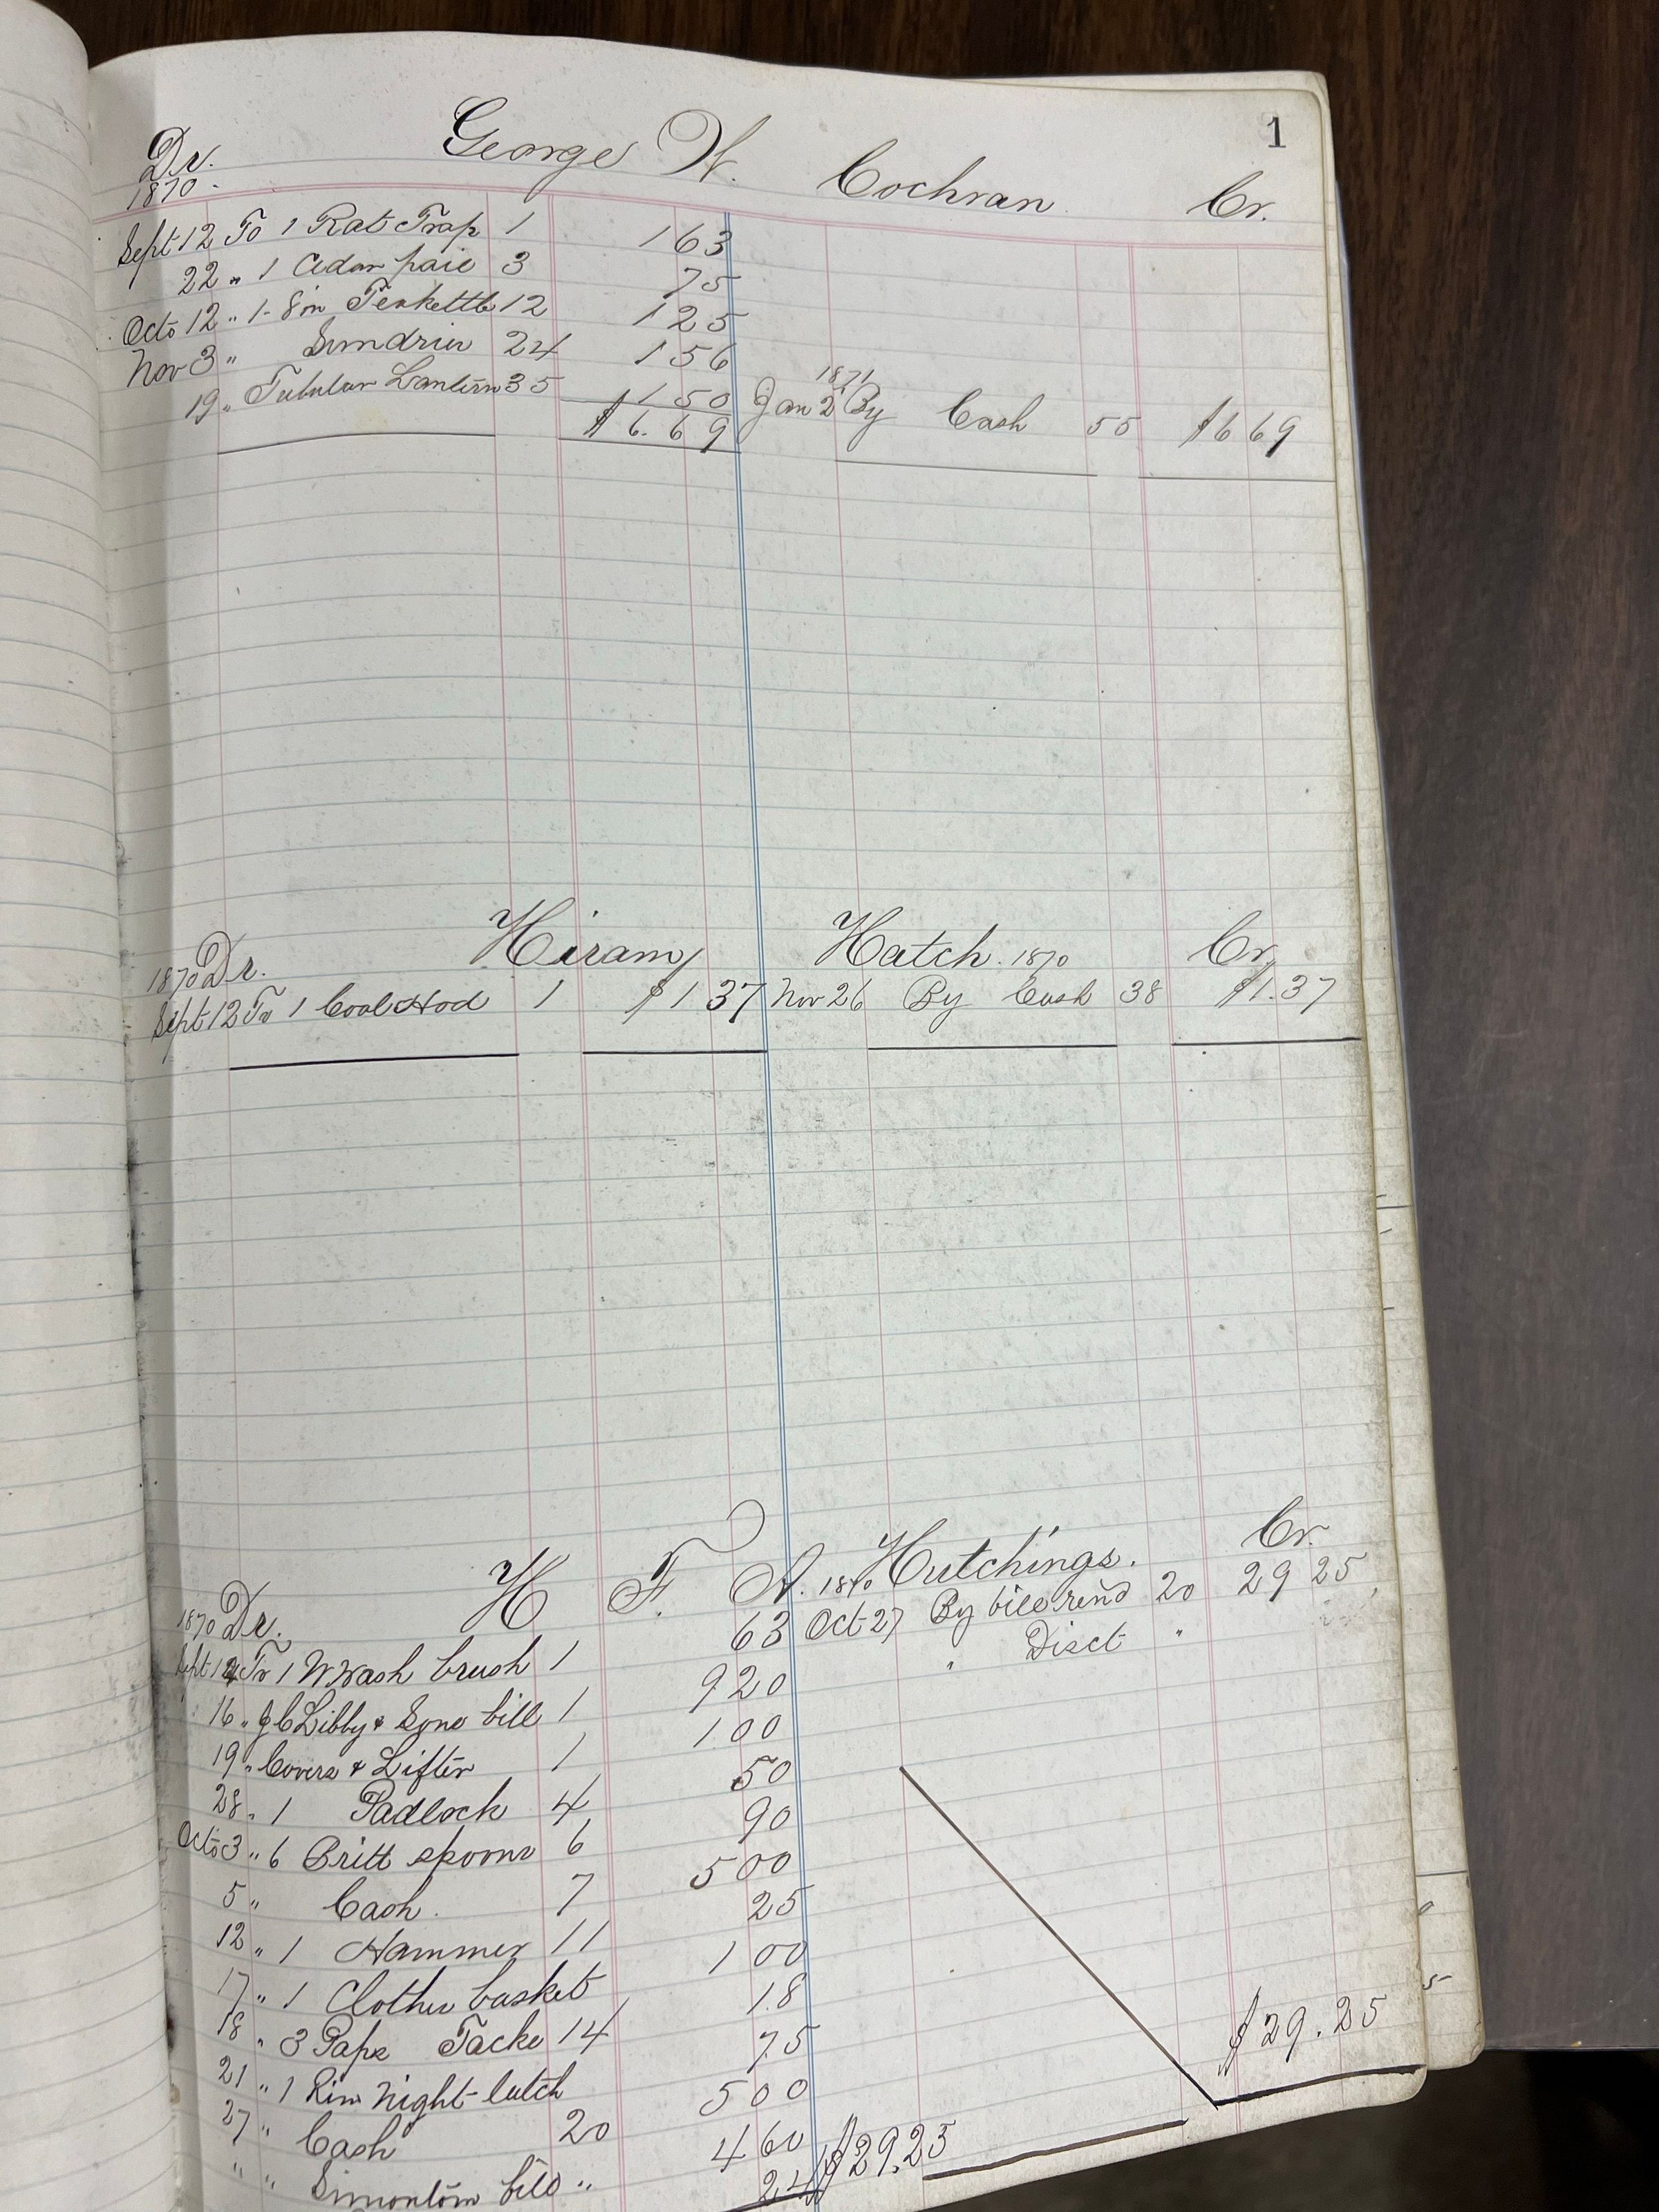 1
Dr. George W. Cochran Cr.
1870.
Sept 12 To 1 Rat Trap 1 1 63
22 " 1 Cedar pail 3 75
Octo 12 " 1-8in Teakettle 12 1 25
Nov 3 " Sundries 24 1 56
1871
19 " Tubular Lantern 35 1 50 Jan 2 By Cash 55 $6 69
$6.69
Dr. Hiram Hatch. Cr.
1870 1870
Sept 12 To 1 Coal Hod 1 $1 37 Nov 26 By Cash 38 $1.37
Dr. H F. A. Hutchings. Cr.
1870 1870
Sept 14 To 1 W Wash brush 1 63 Oct 27 By bill rend 20 29 25
16 " J C Libby & Sons bill 1 9 20 " Disct "
19 " Covers & Lifter 1 1 00
28 " 1 Padlock 4 50
Octo 3 " 6 Britt spoons 6 90
5 " Cash. 7 5 00
12 " 1 Hammer 11 25
17 " 1 Clothes basket 1 00
18 " 3 Paps Tacks 14 18
21 " 1 Rim Night-latch 75
27 " Cash 20 5 00 $29.25
" " Simontons bill " 4 60 $29.25
24